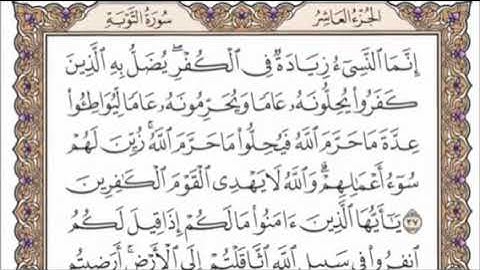 الجزء العاشر سورة التوبة
إِنَّمَا ٱلنَّسِىٓءُ زِيَادَةٌ فِى ٱلْكُفْرِ ۖ يُضَلُّ بِهِ ٱلَّذِينَ
كَفَرُوا۟ يُحِلُّونَهُۥ عَامًا وَيُحَرِّمُونَهُۥ عَامًا لِّيُوَاطِـُٔوا۟
عِدَّةَ مَا حَرَّمَ ٱللَّهُ فَيُحِلُّوا۟ مَا حَرَّمَ ٱللَّهُ ۚ زُيِّنَ لَهُمْ
سُوٓءُ أَعْمَـٰلِهِمْ ۗ وَٱللَّهُ لَا يَهْدِى ٱلْقَوْمَ ٱلْكَـٰفِرِينَ
٣٧ يَـٰٓأَيُّهَا ٱلَّذِينَ ءَامَنُوا۟ مَا لَكُمْ إِذَا قِيلَ لَكُمُ
ٱنفِرُوا۟ فِى سَبِيلِ ٱللَّهِ ٱثَّاقَلْتُمْ إِلَى ٱلْأَرْضِ ۚ أَرَضِيتُم